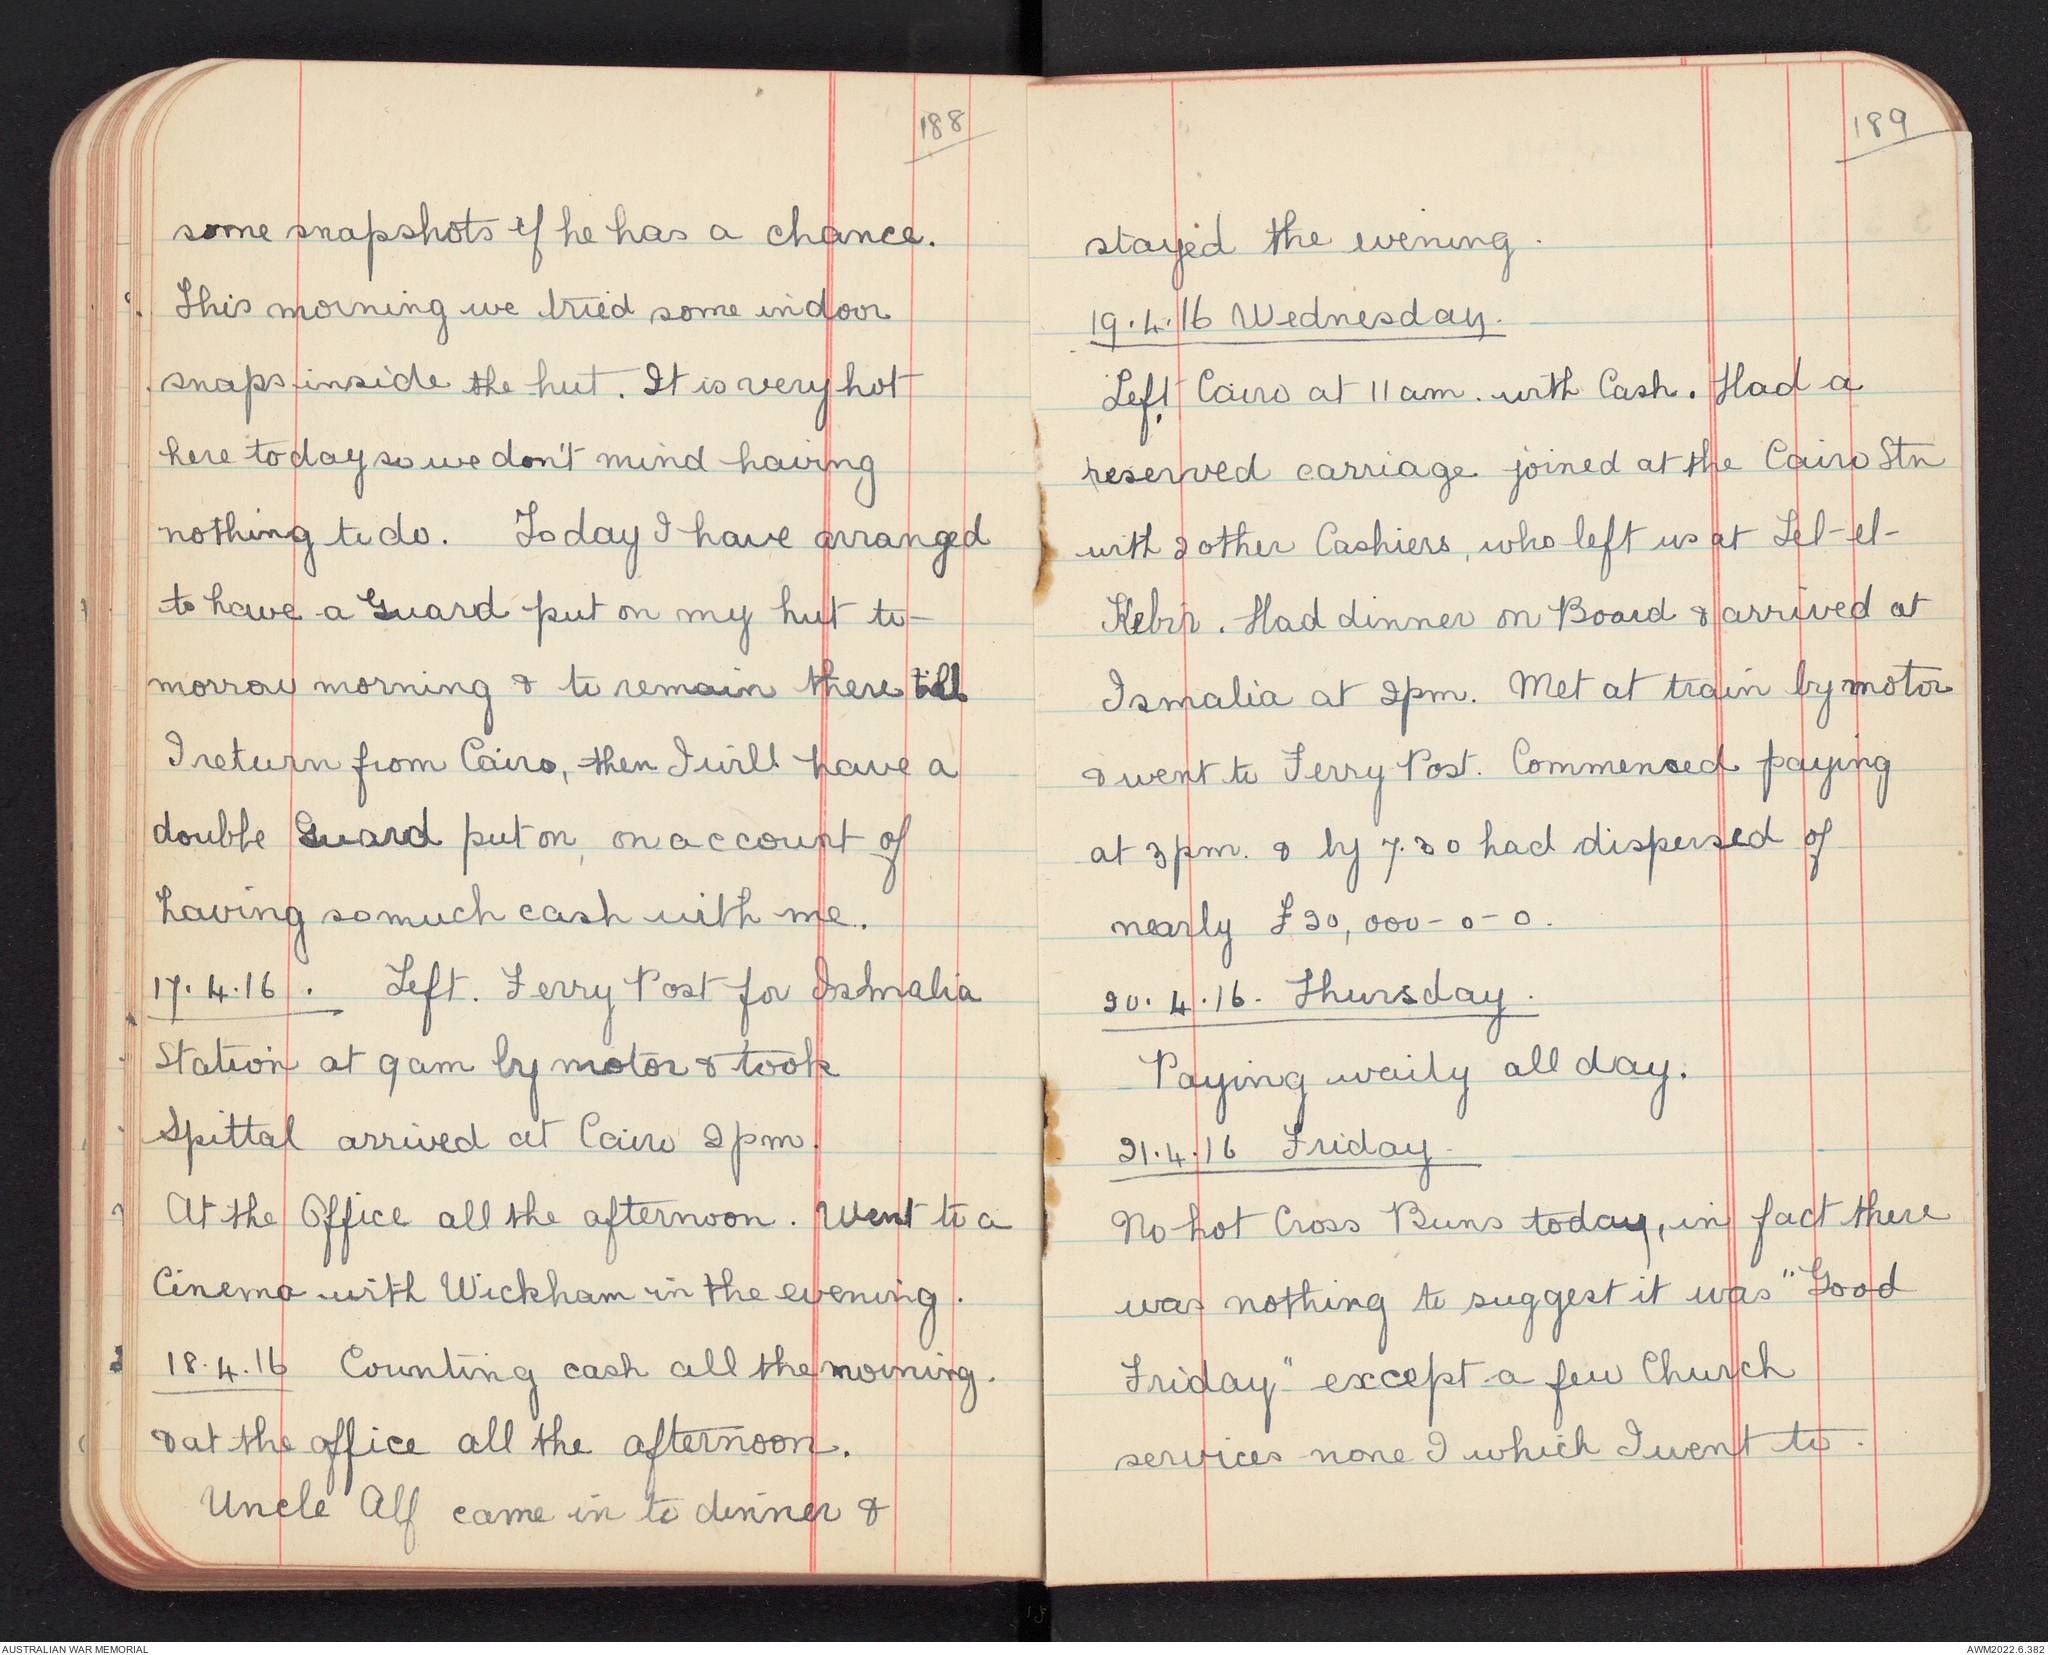 188
some snapshots if he has a chance.
This morning we tried some indoor
snaps inside the hut. It is very hot
here today so we don't mind having
nothing to do. Today I have arranged
to have a Guard put on my hut to-
morrow morning & to remain there till
I return from Cairo, then I will have a
double Guard put on, on account of
having so much cash with me.
17.4.16. Left. Ferry Post for Ismalia
Station at 9 am by motor & took
Spittal arrived at Cairo 2 pm.
At the Office all the afternoon. Went to a
Cinema with Wickham in the evening.
18.4.16 Counting cash all the morning.
& at the office all the afternoon.
Uncle Alf came in to dinner &
189
stayed the evening.
19.4.16 Wednesday.
Left Cairo at 11 am. with Cash. Had a
reserved carriage joined at the Cairo Stn
with 2 other Cashiers, who left us at Tel-el-
Kebir. Had dinner on Board & arrived at
Ismalia at 2pm. Met at train by motor
& went to Ferry Post. Commenced paying
at 3 pm. & by 7.30 had dispersed of
nearly £20,000-0-0.
20.4.16. Thursday.
Paying waily all day.
21.4.16 Friday.
No hot Cross Buns today, in fact there
was nothing to suggest it was "Good
Friday" except a few Church
services none I which I went to.
AUSTRALIAN WAR MEMORIAL
AWM2022.6.382